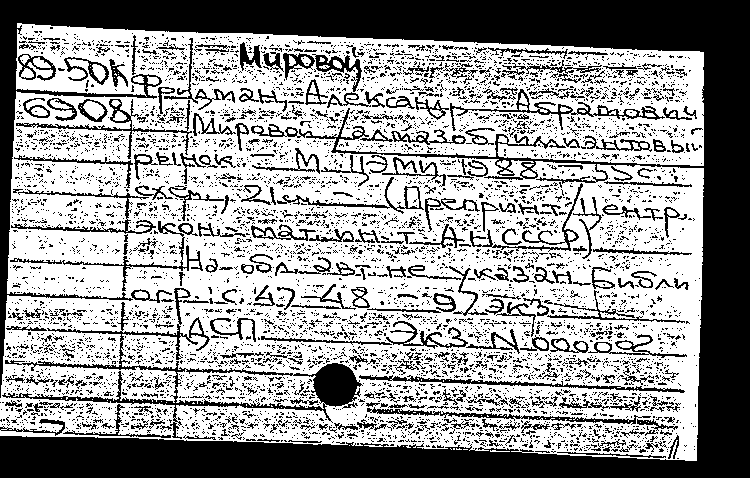 Мировой
89-50К
Фридман, Александр Абрамович
6908
Мировой алмазобриллиантовый
рынок. – М.: ЦЭМИ, 1988. – 55 с.:
схем.; 21 см. – (Препринт/Центр.
экон.-мат. ин-т АН СССР)
На обл. авт. не указан. Библи
огр.: с. 47-48. – 97 экз.
ДСП Экз. N 00002